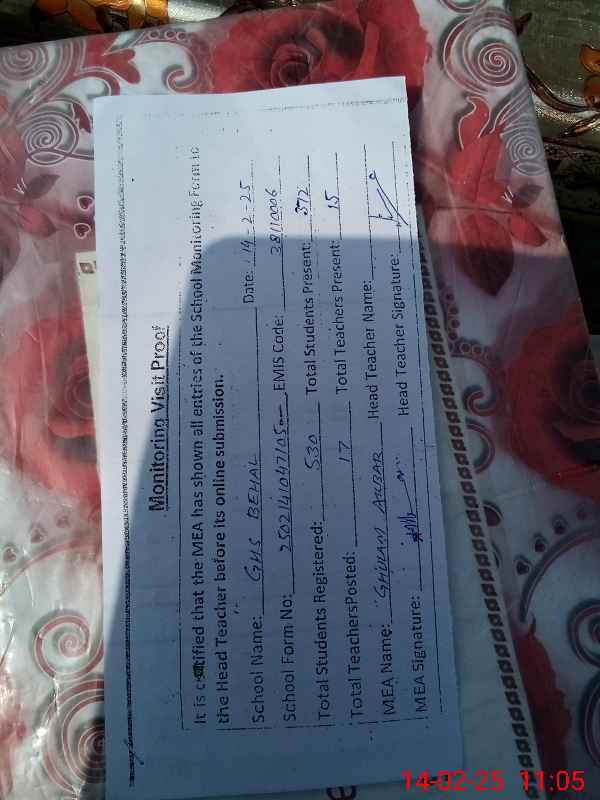 Monitoring Visit Proof
It is certified that the MEA has shown all entries of the School Monitoring Form to
the Head Teacher before its online submission.
School Name: GHS BEHAL Date: 14-2-25
School Form No: 2502141047105 EMIS Code: 38110006
Total Students Registered: 530 Total Students Present: 372
Total TeachersPosted: 17 Total Teachers Present: 15
MEA Name: GHULAM AKBAR Head Teacher Name:
MEA Signature: Head Teacher Signature:
14-02-25 11:05